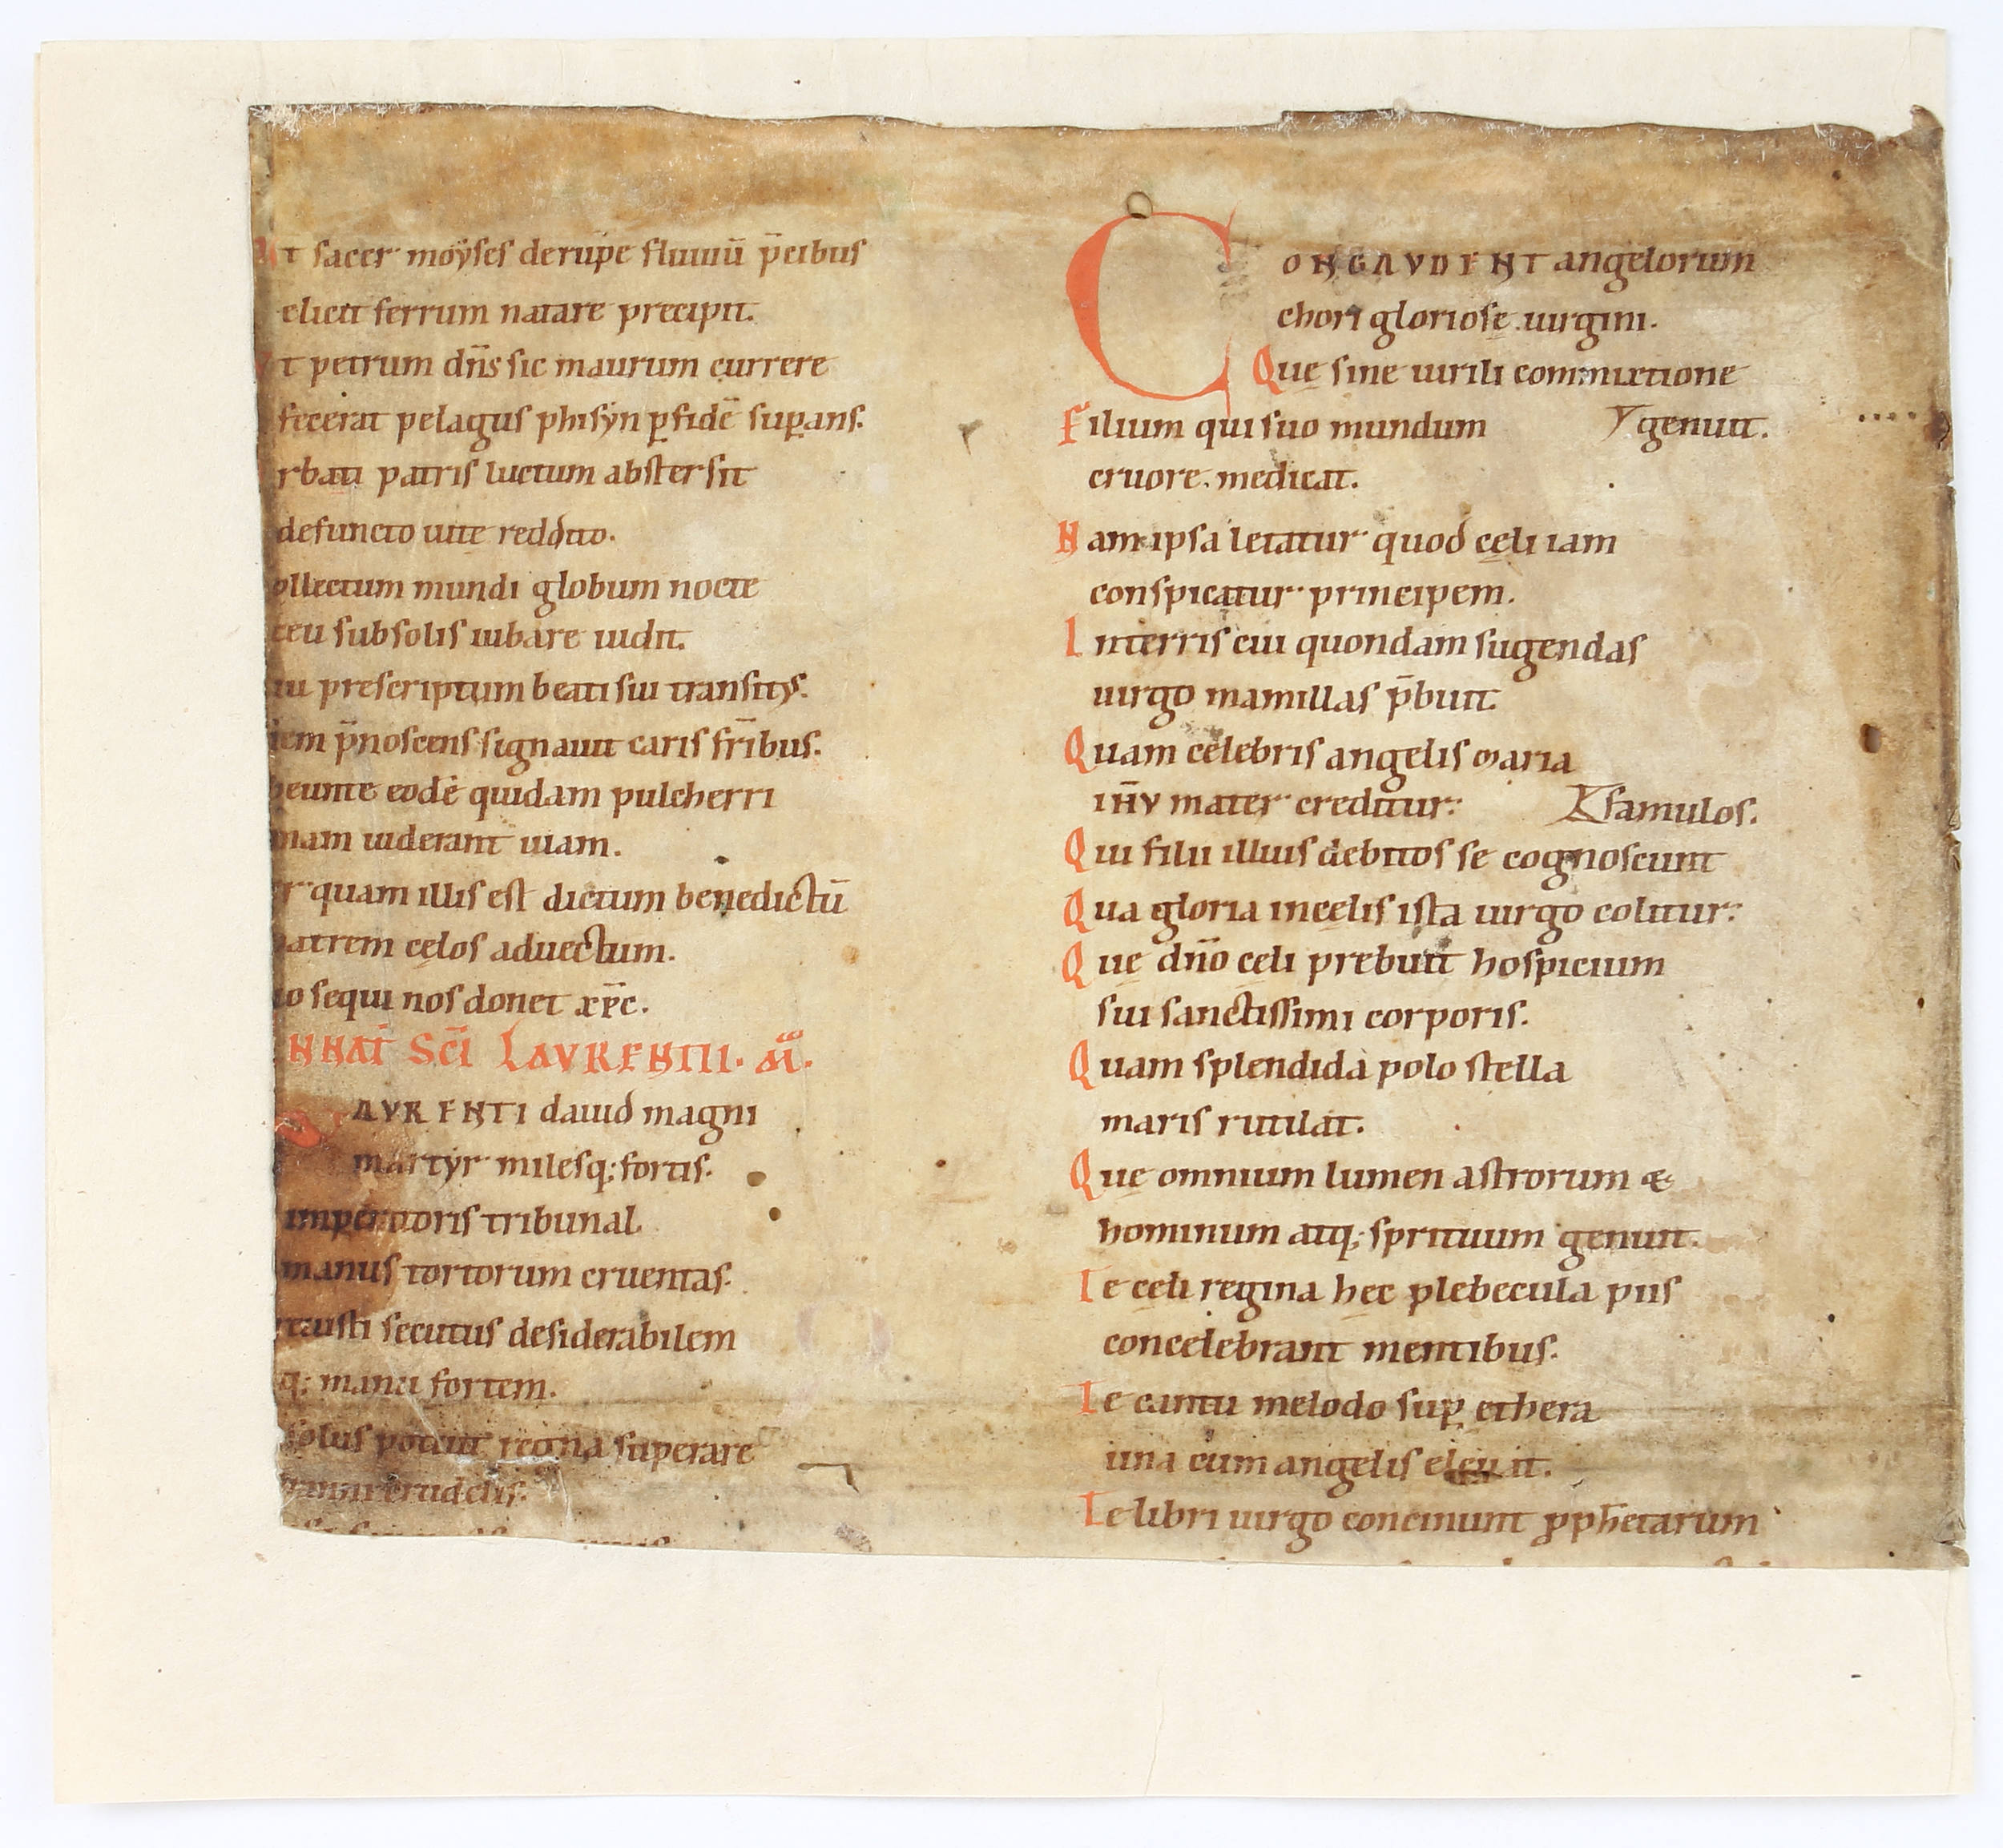 Vt sacer moyses de rupe fluuiū p̄cibus
elicit ferrum natare precipit.
Vt petrum dn̄s sic maurum currere
fecerat pelagus phisyn ꝑfidē suꝑans.
rbati patris luctum abstersit
defuncto uite reddito.
ollectum mundi globum nocte
ceu sub solis iubare uidit.
iu prescriptum beati sui transitꝰ.
iem p̄noscens signauit caris fr̄ibus.
beunte eodē quidam pulcherri
mam uiderant uiam.
r quam illis est dictum benedictū
patrem cęlos aduectum.
o sequi nos donet xp̄c.
N NAT̄ SC̄I LAVRENTII. M̄.
AVRENTI dauid magni
martyr milesq; fortis.
imperatoris tribunal
manus tortorum cruentas.
reuisti secutus desiderabilem
q; manu fortem.
solus potuit regna superare
ranni crudelis.
CONGAVDENT angelorum
chori gloriosę uirgini.
Quę sine uirili commixtione
genuit.
Filium qui suo mundum
cruore medicat.
Nam ipsa lętatur quod cęli iam
conspicatur principem.
In terris cui quondam sugendas
uirgo mamillas p̄buit.
Quam celebris angelis maria
ih̄v mater creditur:
famulos.
Qui filii illius debitos se cognoscunt
Qua gloria in cęlis ista uirgo colitur:
Quę dn̄o cęli prebuit hospicium
sui sanctissimi corporis.
Quam splendida polo stella
maris rutilat.
Quę omnium lumen astrorum &
hominum atq; sprituum genuit.
Te cęli regina hęc plebecula piis
concelebrant mentibus.
Te cantu melodo suꝑ ethera
una cum angelis eleuat.
Te libri uirgo concinunt ꝓphetarum